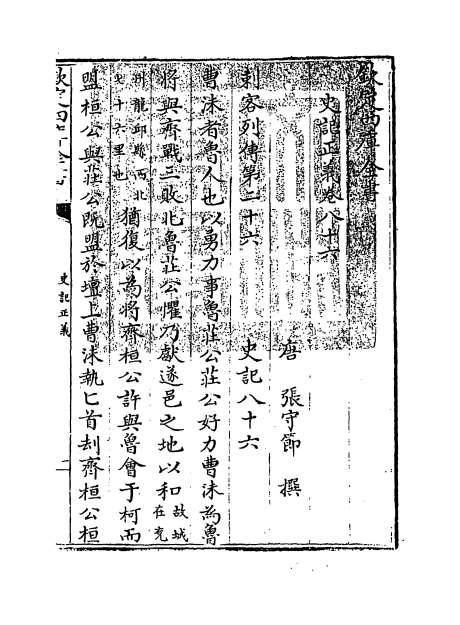 欽定四庫全書
史記正義卷八十六
唐 張守節 撰
刺客列傳第二十六 史記八十六
曹沫者魯人也以勇力事魯莊公莊公好力曹沫為魯
將與齊戰三敗北魯莊公懼乃獻遂邑之地以和故城在兗
州龍邱縣西北七十六里也猶復以為將齊桓公許與魯會于柯而
盟桓公與莊公既盟於壇上曹沫執匕首刦齊桓公桓
欽定四庫全書
史記正義